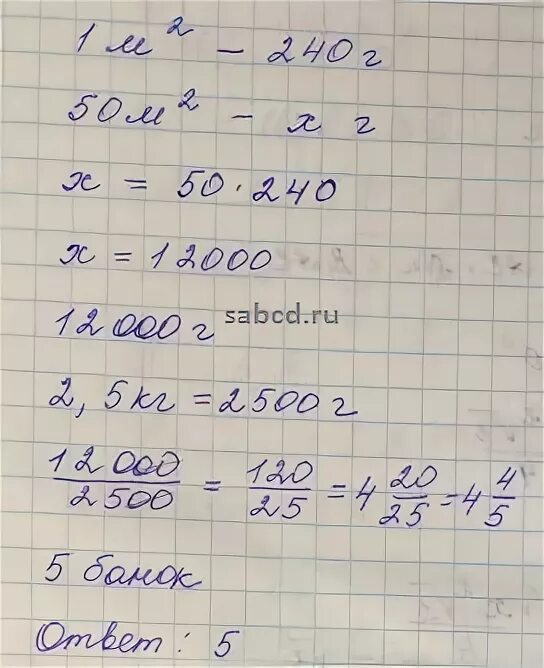 1 м² – 240 г
50 м² – х г
х = 50 · 240
х = 12000
12000 г
sabcd.ru
2,5 кг = 2500 г
12000/2500 = 120/25 = 4 20/25 = 4 4/5
5 банок
Ответ: 5